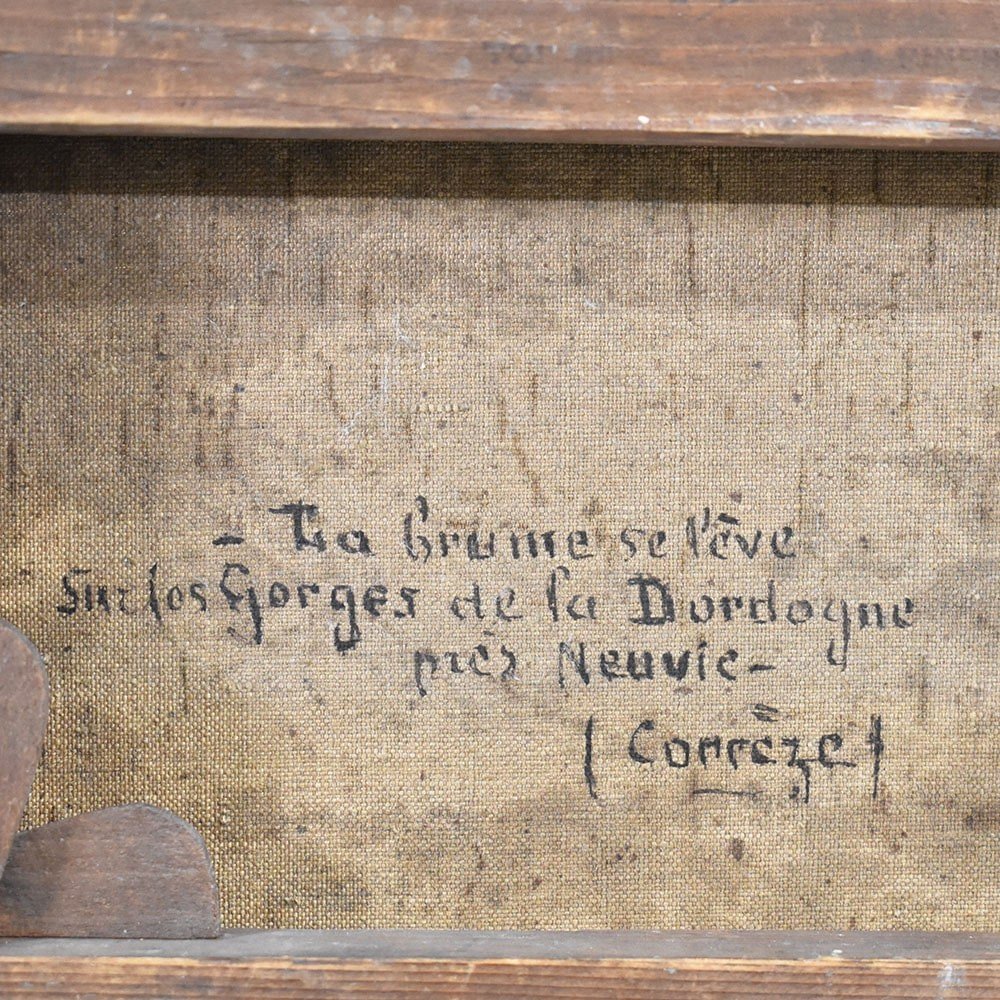 - La Brume se lève
sur les Gorges de la Dordogne
près Neuvic -
(Corrèze)